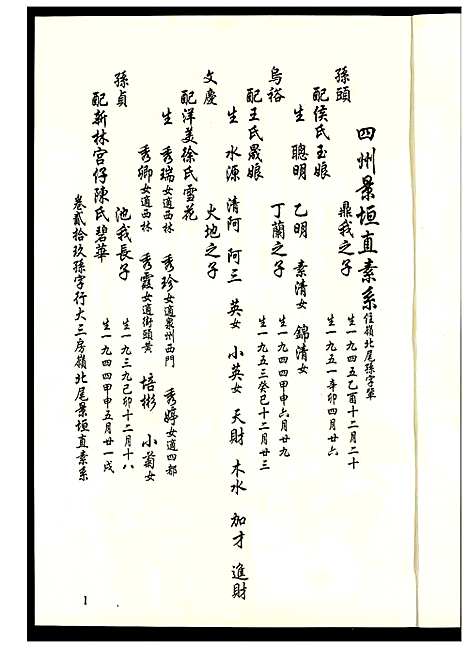 四州景垣直素系 住嶺北尾孫字輩
孫頭 鼎我之子 生一九四五乙酉十二月二十
配侯氏玉娘 生一九五一辛卯四月廿六
生 聰明 乙明 素清女 錦清女
烏裕 丁蘭之子 生一九四四甲申六月廿九
配王氏晟娘 生一九五三癸巳十二月廿三
生 水源 清阿 阿三 英女 小英女 天財 木水 加才 進財
文慶 火地之子
配洋美徐氏雪花
生 秀瑞女適西林 秀珍女適泉州西門 秀婷女適四都
秀卿女適西林 秀霞女適街頭黄 培彬 小菊女
孫貞 池我長子 生一九三九己卯十二月十八
配新林宮仔陳氏碧華 生一九四四甲申五月廿一戌
卷貳拾玖孫字行大三房嶺北尾景垣直素系
1